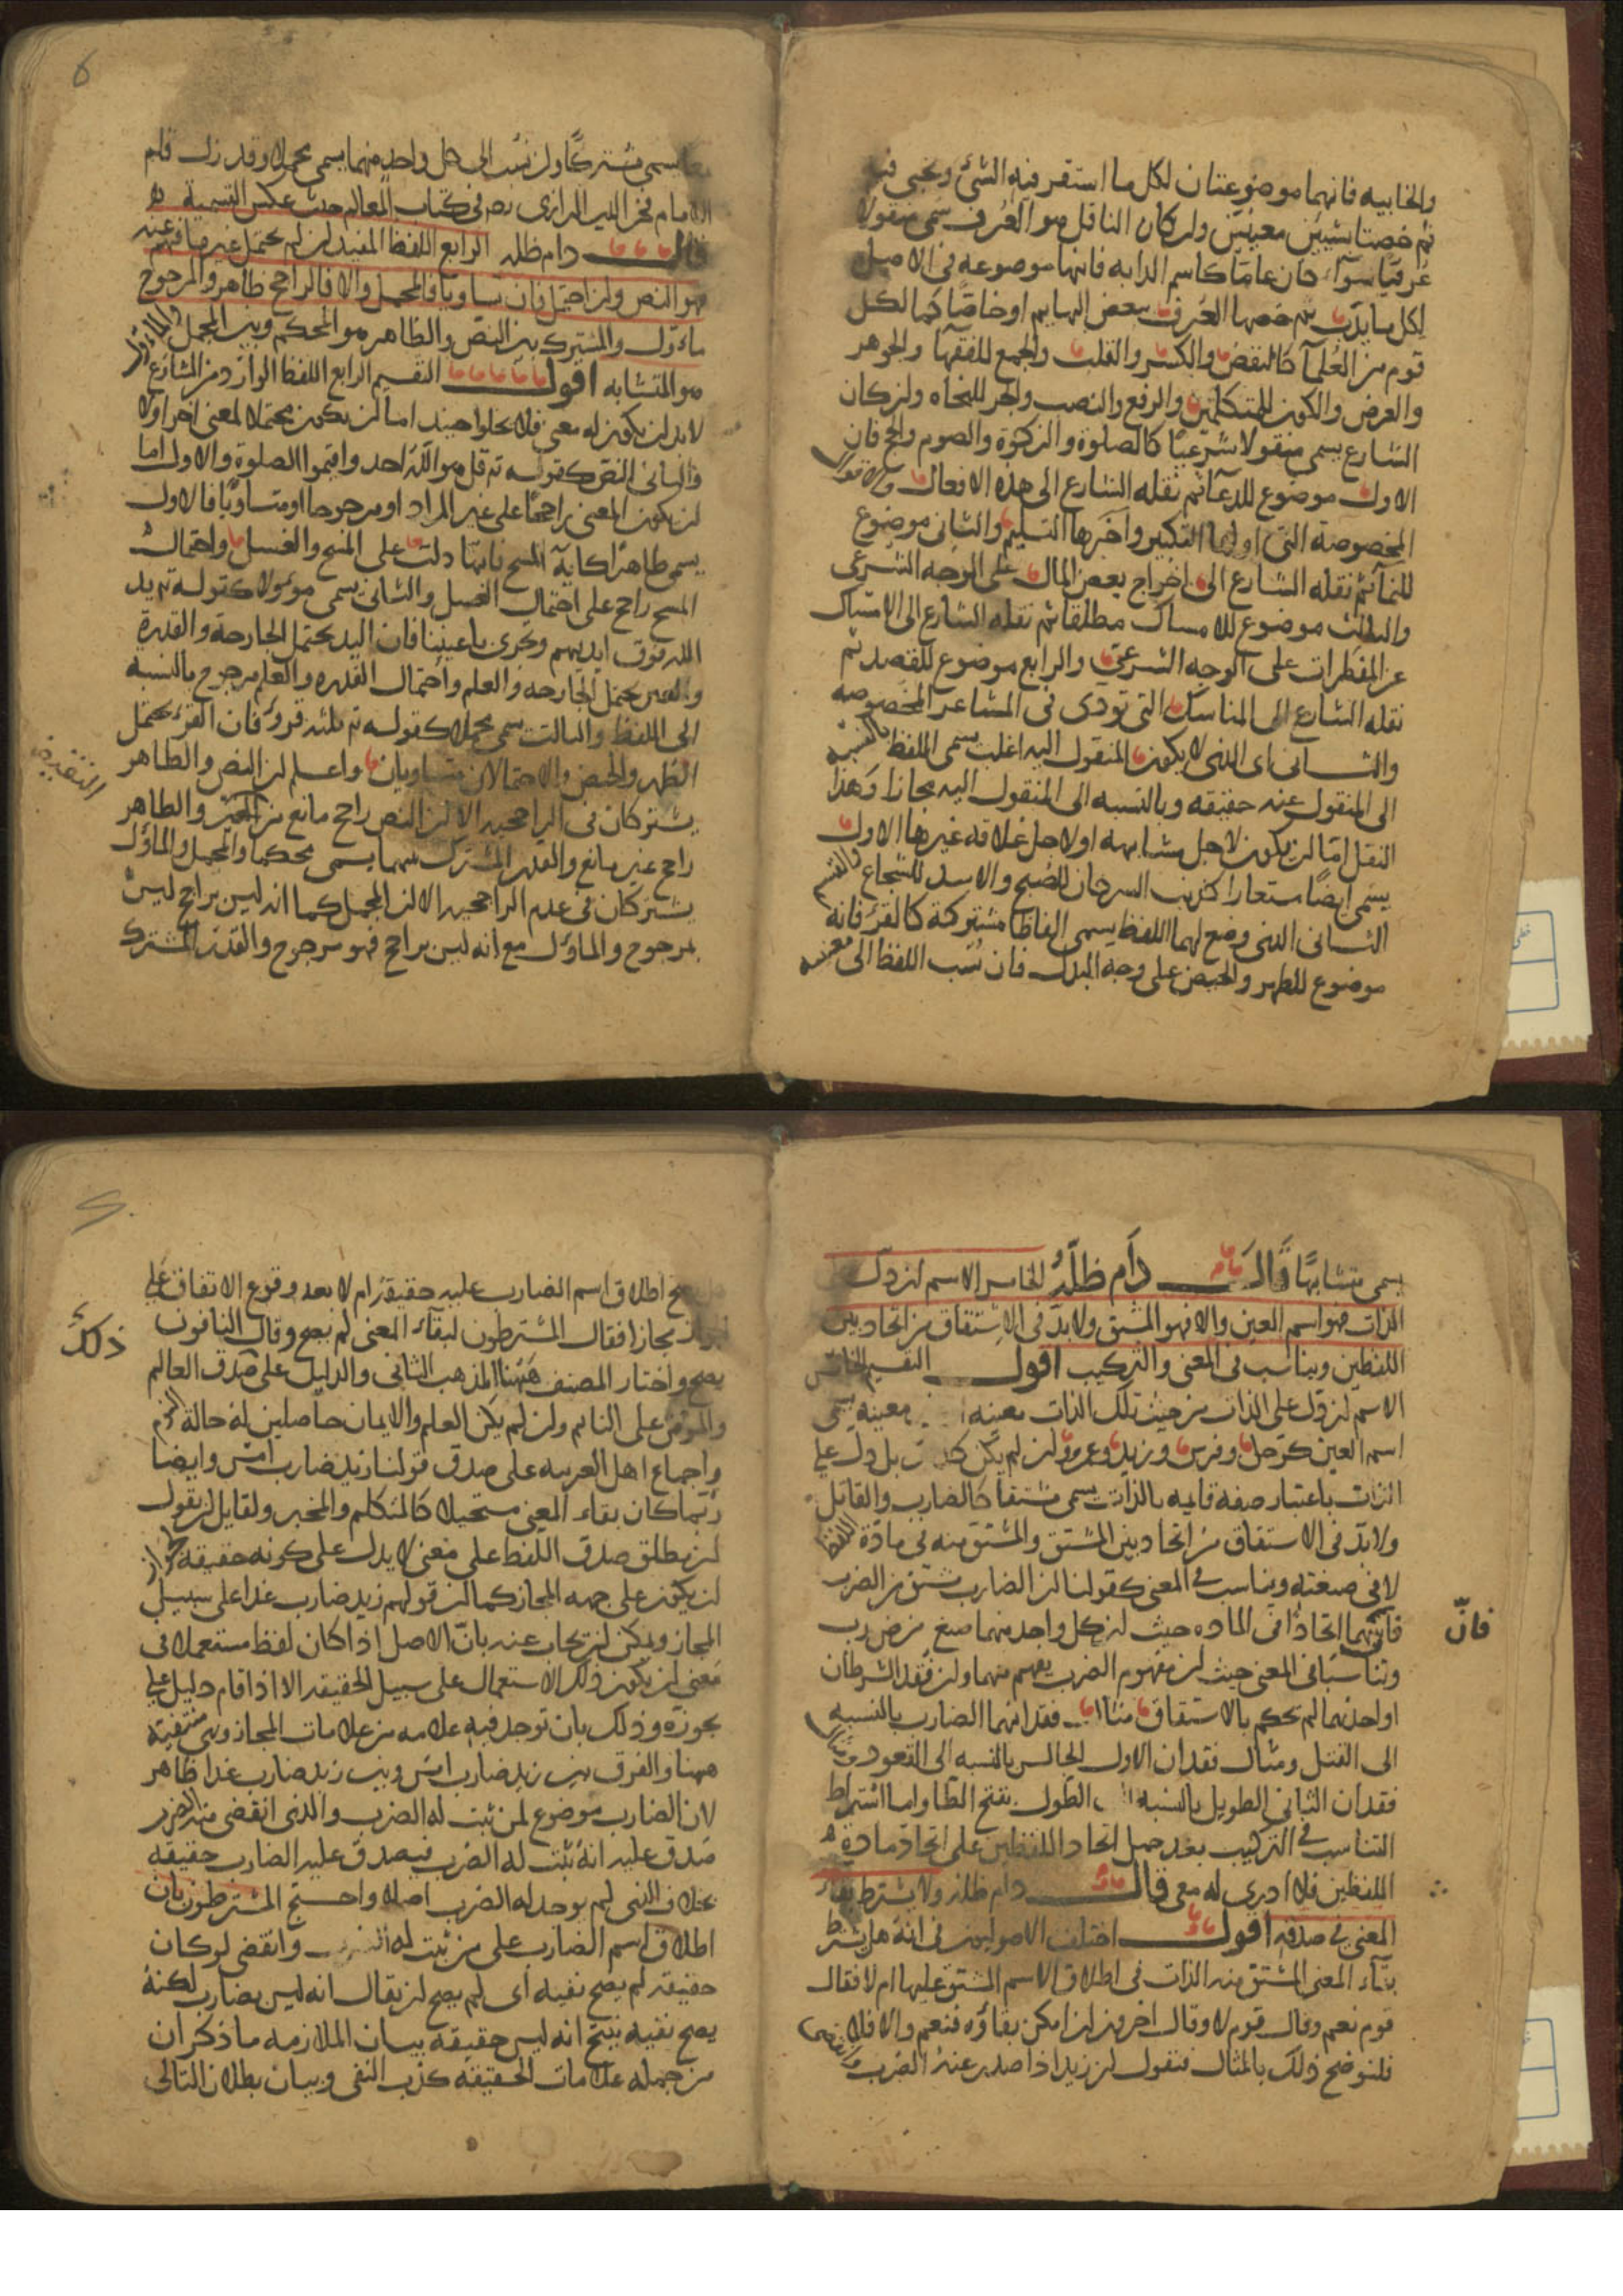 والخابيه فانهما موضوعتان لكل ما استقر فيه الشئ ويخبى فيه
ثم خصتا بشيئين معينين ولن كان الناقل هو العرف سمى منقولا
عرفيا سوآء كان عاما كاسم الدابه فانها موضوعه فى الاصل
لكل ما يدب ثم خصها العرف ببعض البهايم او خاصا كما لكل
قوم من العلمآ كالنقض والكسر والقلب والجمع للفقهآ والجوهر
والعرض والكون للمتكلمين والرفع والنصب والجر للنحاه ولن كان
الشارع يسمى منقولا شرعيا كالصلوة والزكوة والصوم والحج فان
الاول موضوع للدعآ ثم نقله الشارع الى هذه الافعال والاقوال
المخصوصة التى اولها التكبير واخرها التسليم والثانى موضوع
للنمآ ثم نقله الشارع الى اخراج بعض المال على الوجه الشرعى
والثالث موضوع للامساك مطلقا ثم نقله الشارع الى الامساك
عن المفطرات على الوجه الشرعى والرابع موضوع للقصد ثم
نقله الشارع الى المناسك التى تودى فى المشاعر المخصوصه
والثانى اى الذى لا يكون المنقول اليه اغلب سمى اللفظ بالنسبة
الى المنقول عنه حقيقه وبالنسبه الى المنقول اليه مجازا وهذا
النقل اما لن يكون لاجل مشابهه او لاجل علاقه غيرها الاول
يسمى ايضا مستعارا كذنب السرحان للصبح والاسد للشجاع والقسم
الثانى الذى وضع لهما اللفظ يسمى الفاظا مشتركة كالقرء فانه
موضوع للطهر والحيض على وجه البدل فان نسب اللفظ الى معنييه
يسمى مشتركا ولن نسب الى كل واحد منهما يسمى مجملا وقد زل قلم
الامام فخر الدين الرازى ره فى كتاب المعالم حيث عكس القسمة
قال دام ظله الرابع اللفظ المفيد لن لم يحتمل غير ما فهم عنه
فهو النص ولن احتمل فان تساويا فالمجمل والا فالراجح ظاهر والمرجوح
ماؤل والمشترك بين النص والظاهر هو المحكم وبين المجمل والماؤل
هو المتشابه اقول التقسيم الرابع اللفظ الوارد من الشارع
لابد لن يكون له معنى فلا يخلوا حينيذ اما لن يكون محتملا لمعنى اخر او لا
والثانى النص كقوله تع قل هو الله احد واقيموا الصلوة والاول اما
لن يكون المعنى راجحا على غير المراد او مرجوحا او متساويا فالاول
يسمى ظاهرا كاية المسح فانها دلت على المسح والغسل واحتمال
المسح راجح على احتمال الغسل والثانى يسمى موولا كقوله تع يد
الله فوق ايديهم وتجرى باعيننا فان اليد يحتمل الجارحة والقدرة
والعين يحتمل الجارحه والعلم واحتمال القدره والعلم مرجوح بالنسبه
الى اللفظ والثالث سمى مجملا كقوله تع ثلثه قروء فان القرء يحتمل
الطهر والحيض والاحتمالان متساويان واعلم لن النص والظاهر
يشتركان فى الراجحيه الا لن النص راجح مانع من والظاهر
راجح غير مانع والقدر المشترك بينهما يسمى محكما والمجمل والماؤل
يشتركان فى عدم الراجحيه الا لن المجمل كما انه ليس براجح ليس
بمرجوح والماؤل مع انه ليس براجح فهو مرجوح والقدر المشترك
يسمى متشابها قال دام ظله الخامس الاسم لن دل على
الذات فهو اسم العين والا فهو المشتق ولابد فى الاشتقاق من اتحاد بين
اللفظين وتناسب فى المعنى والتركيب اقول التقسيم الخامس
الاسم لن دل على الذات من حيث تلك الذات معينه معينه يسمى
اسم العين كرجل وفرس وزيد وعمرو ولن لم يكن كذ بل دل على
الذات باعتبار صفه قايمه بالذات يسمى مشتقا كالضارب والقاتل
ولابد فى الاشتقاق من اتحاد بين المشتق والمشتق منه فى مادة اللفظ
لا فى صيغته وتناسب فى المعنى كقولنا لن الضارب مشتق من الضرب
فان بينهما اتحادا فى الماده حيث لن كل واحد منهما صيغ من ض ر ب
فانّ
وتناسبا فى المعنى حيث لن مفهوم الضرب يفهم منهما ولن فقد الشرطان
او احدهما لم تحكم بالاشتقاق مثال فقدانهما الضارب بالنسبه
الى القتل ومثال فقدان الاول الجالس بالنسبه الى القعود ومثال
فقدان الثانى الطويل بالنسبه الطول بفتح الطا واما اشتراط
التناسب فى التركيب بعد حمل اتحاد اللفظين على اتحاد مادة
اللفظين فلا ادرى له معى قال دام ظله ولا يشترط بقاء
المعنى فى صدقه اقول اختلف الاصوليون فى انه هل يشترط
بقآء المعنى المشتق منه الذات فى اطلاق الاسم المشتق عليها ام لا فقال
قوم نعم وقال قوم لا وقال اخرون لن امكن بقاؤه فنعم والا فلا
فلنوضح ذلك بالمثال فنقول لن زيد اذا صدر عنه الضرب
يصح اطلاق اسم الضارب عليه حقيقة ام لا بعد وقوع الاتفاق على
ذلك
مجازا فقال المشترطون لبقآء المعنى لم يصح وقال النافون
يصح واختار المصنف ههنا المذهب الثانى والدليل على صدق العالم
والمؤمن على النايم ولن لم يكن العلم والايمان حاصلين له حالة النوم
واجماع اهل العربيه على صدق قولنا زيد ضارب امس وايضا
ربما كان بقاء المعنى مستحيلا كالمتكلم والمخبر ولقايل لن يقول
لن مطلق صدق اللفظ على معنى لا يدل على كونه حقيقه لجواز
لن يكون على جهه المجاز كما لن قولهم زيد ضارب غدا على سبيل
المجاز ويمكن لن يجاب عنه بانّ الاصل اذا كان لفظ مستعملا فى
معنى لن يكون ذلك الاستعمال على سبيل الحقيقه الا اذا قام دليل على
تجوزه وذلك بان توجد فيه علامه من علامات المجاز وهى منتفية
ههنا والفرق بين زيد ضارب امس وبين زيد ضارب غدا ظاهر
لان الضارب موضوع لمن ثبت له الضرب والذى انقضى منه الضرب
صدق عليه انه ثبت له الضرب فيصدق عليه الضارب حقيقه
بخلاف الذى لم يوجد له الضرب اصلا واحتج المشترطون بان
اطلاق اسم الضارب على من ثبت له الضرب وانقضى لو كان
حقيقه لم يصح نفيه اى لم يصح لن يقال انه ليس بضارب لكنه
يصح نفيه ينتج انه ليس حقيقه بيان الملازمه ما ذكر ان
من جمله علامات الحقيقه كذب النفى وبيان بطلان التالى